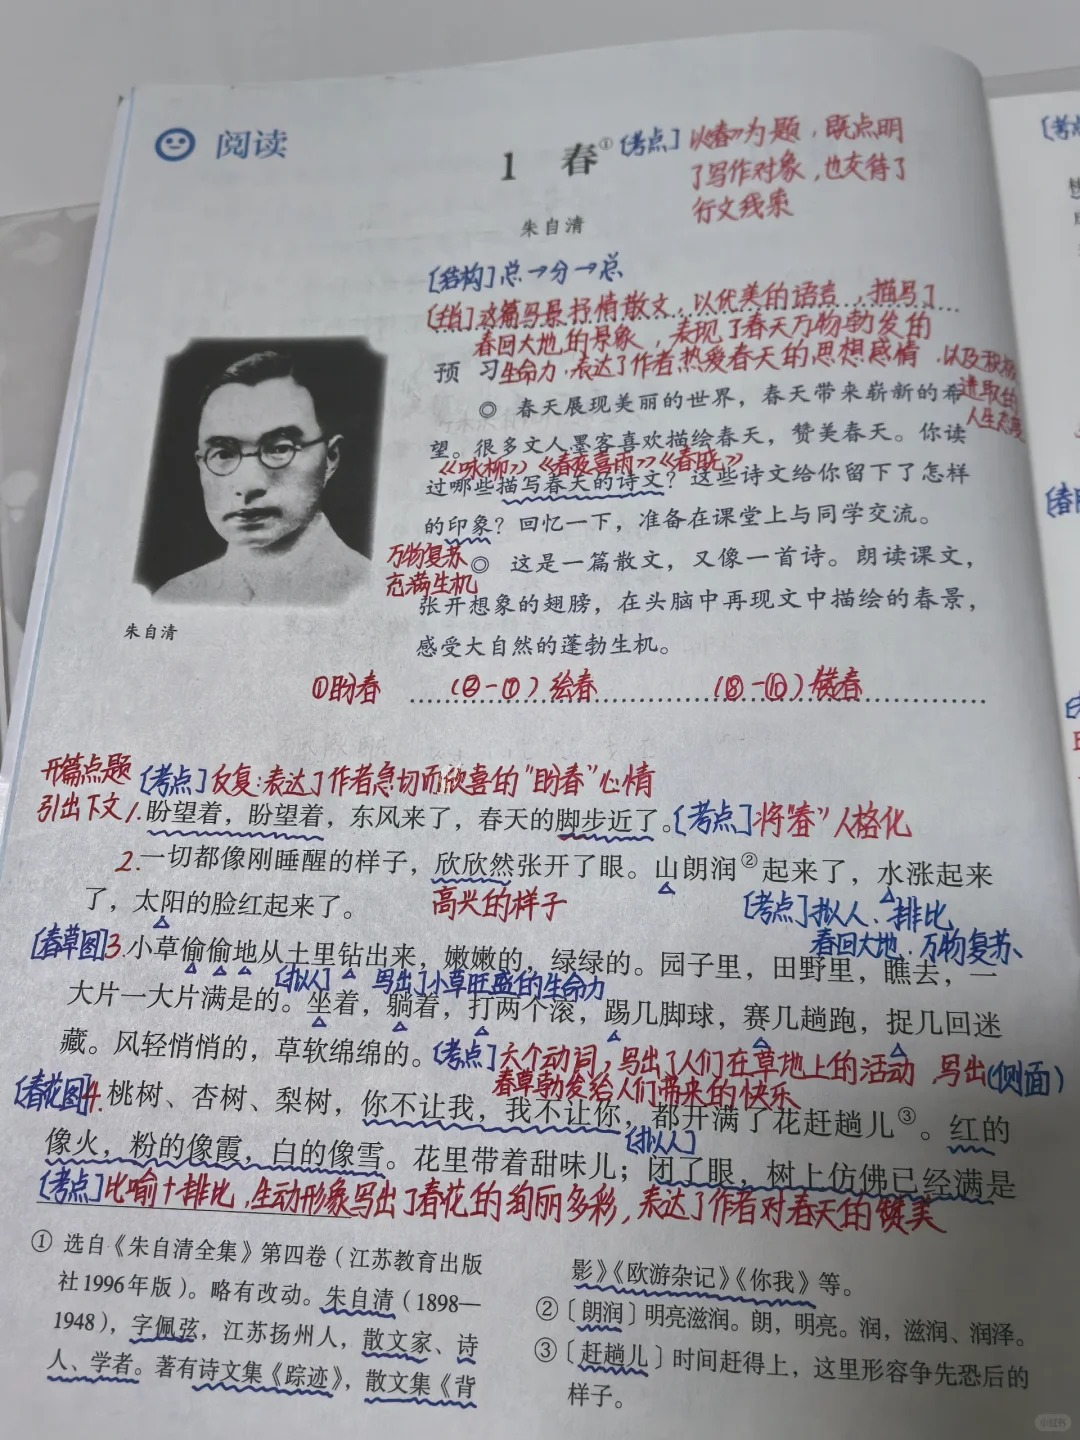 阅读
1 春① [考点] 以《春》为题，既点明
了写作对象，也交待了
行文线索
朱自清
[结构] 总→分→总
这篇写景抒情散文，以优美的语言，描写了
春回大地的景象，表现了春天万物勃发的
生命力，表达了作者热爱春天的思想感情，以及积极
进取的
人生态度
预 习
◎ 春天展现美丽的世界，春天带来崭新的希
望。很多文人墨客喜欢描绘春天，赞美春天。你读
《咏柳》《春夜喜雨》《春晓》
过哪些描写春天的诗文？这些诗文给你留下了怎样
的印象？回忆一下，准备在课堂上与同学交流。
万物复苏
充满生机
◎ 这是一篇散文，又像一首诗。朗读课文，
张开想象的翅膀，在头脑中再现文中描绘的春景，
感受大自然的蓬勃生机。
朱自清
①盼春 (②-⑦)绘春 (⑧-⑩)赞春
开篇点题
引出下文
[考点] 反复：表达了作者急切而欣喜的“盼春”心情
1. 盼望着，盼望着，东风来了，春天的脚步近了。[考点] 将“春”人格化
2. 一切都像刚睡醒的样子，欣欣然张开了眼。山朗润②起来了，水涨起来
了，太阳的脸红起来了。
高兴的样子
[考点] 拟人、排比
春回大地、万物复苏
[春草图] 3. 小草偷偷地从土里钻出来，嫩嫩的，绿绿的。园子里，田野里，瞧去，一
[拟人] 写出了小草旺盛的生命力
大片一大片满是的。坐着，躺着，打两个滚，踢几脚球，赛几趟跑，捉几回迷
藏。风轻悄悄的，草软绵绵的。[考点] 六个动词，写出了人们在草地上的活动，写出(侧面)
春草勃发给人们带来的快乐
[春花图] 4. 桃树、杏树、梨树，你不让我，我不让你，都开满了花赶趟儿③。红的
[拟人]
像火，粉的像霞，白的像雪。花里带着甜味儿；闭了眼，树上仿佛已经满是
[考点] 比喻+排比，生动形象写出了春花的绚丽多彩，表达了作者对春天的赞美
① 选自《朱自清全集》第四卷（江苏教育出版
社1996年版）。略有改动。朱自清（1898—
1948），字佩弦，江苏扬州人，散文家、诗
人、学者。著有诗文集《踪迹》，散文集《背
影》《欧游杂记》《你我》等。
②〔朗润〕明亮滋润。朗，明亮。润，滋润、润泽。
③〔赶趟儿〕时间赶得上，这里形容争先恐后的
样子。
小红书